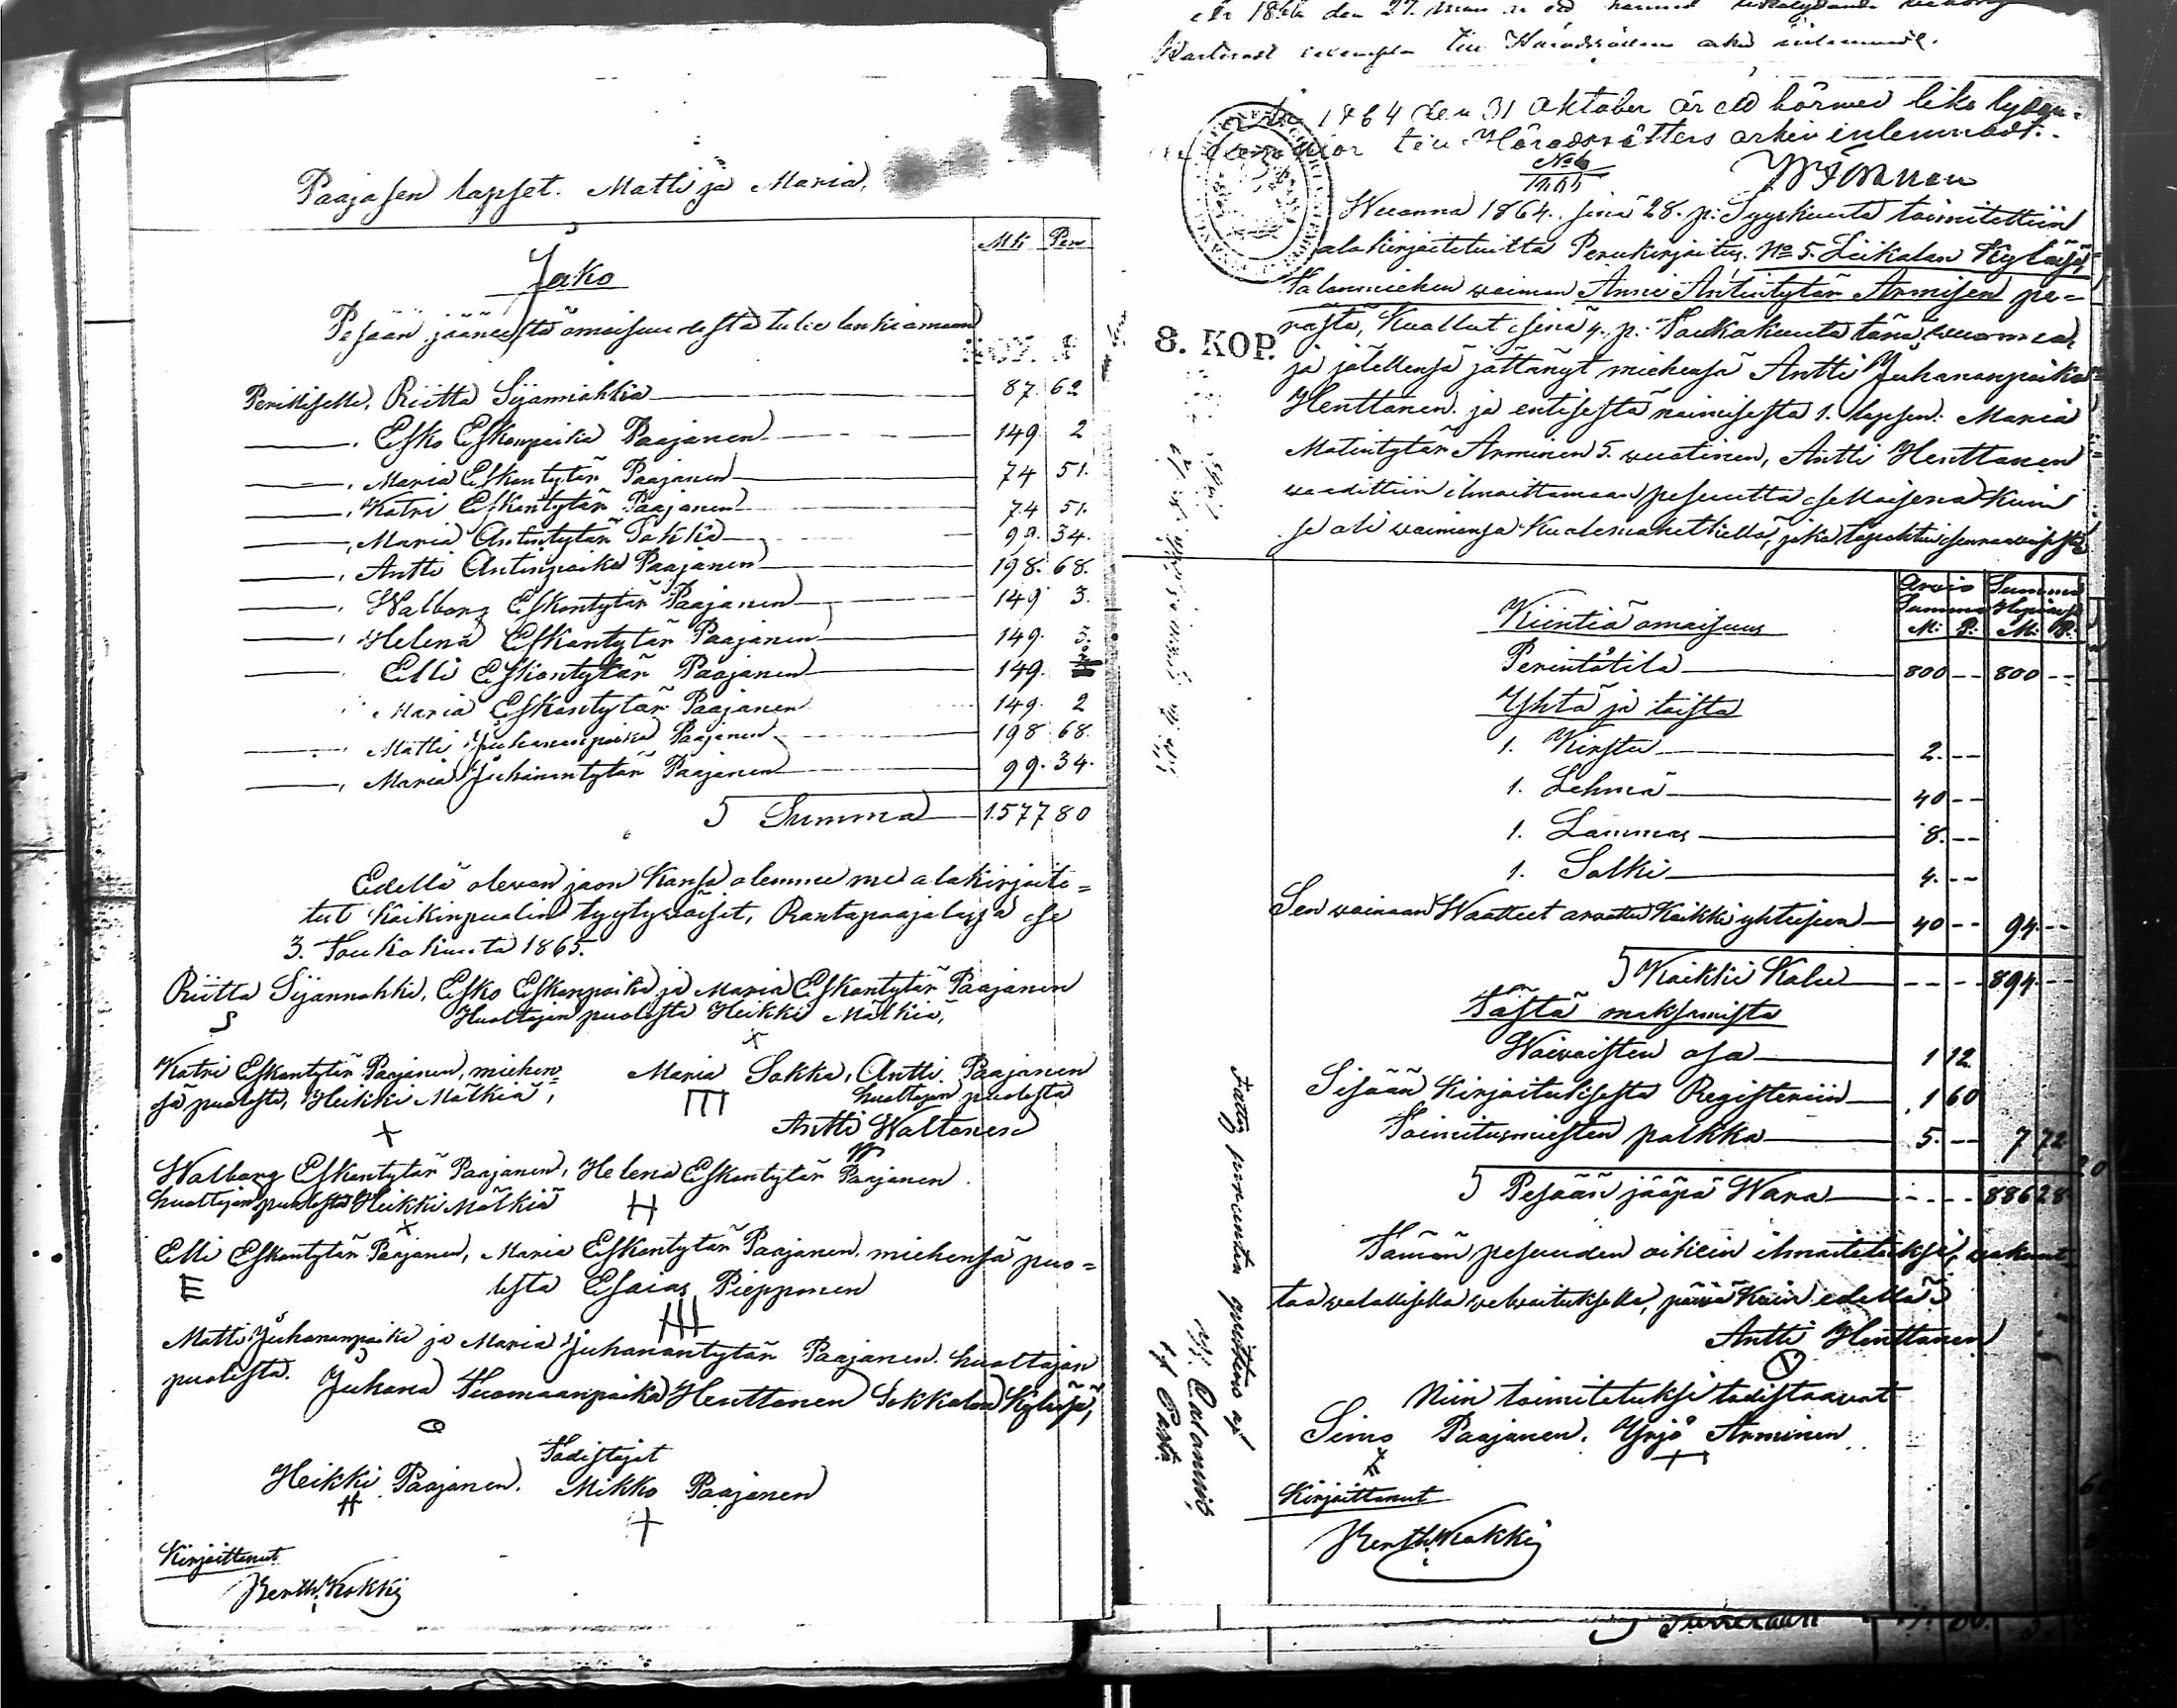 Paajasen lapset. Matti ja Maria,
Mk Pen
Jako
Pesään jääneestä omaisuudesta tulee lankiamaan
Perilliselle, Riitta Sijannahka 87. 62
" Esko Eskonpoika Paajanen 149 2
" Maria Eskontytär Paajanen 74 51.
" Katri Eskontytär Paajanen 74 51.
" Maria Antintytär Sokka 99. 34.
" Antti Antinpoika Paajanen 198. 68.
" Walborg Eskontytär Paajanen 149 3.
" Helena Eskontytär Paajanen 149. 3.
Elli Eskontytär Paajanen 149.
" Maria Eskontytär Paajanen 149. 2
" Matti Juhananpoika Paajanen 198 68.
" Maria Juhanantytär Paajanen 99. 34.
Summa 1577 80
Edellä olewan jaon kansa olemme me alakirjoite=
tut kaikinpuolin tyytywäiset, Rantapaajalassa se
3. Toukokuuta 1865.
Riitta Sijannahka, Esko Eskonpoika ja Maria Eskontytär Paajanen
Huoltajan puolesta Heikki Mälkiä,
Katri Eskontytär Paajanen, miehen=
sä puolesta, Heikki Mälkiä,
Maria Sokka, Antti Paajanen
huoltajan puolesta
Antti Waltonen
Walborg Eskontytär Paajanen, Helena Eskontytär Paajanen.
huoltajan puolesta Heikki Mälkiä
Elli Eskontytär Paajanen, Maria Eskontytär Paajanen. miehensä puo=
lesta Esaias Piepponen
Matti Juhananpoika ja Maria Juhanantytär Paajanen. huoltajan
puolesta. Juhana Tuomaanpoika Henttonen Sokkalan Kylästä,
Todistajat
Heikki Paajanen. Mikko Paajanen
Kirjoittanut
Kokki
den 27.
exemplar till Häradsrättens
1864 den 31 Oktober är ett härmed lika lydan=
till Häradsrättens arkiv inlemnadt.
No 6
1865
8. KOP.
Wuonna 1864. sinä 28. p: Syyskuuta toimitettiin
alakirjoitetuilta Perukirjoitus. No 5. Liikalan Kylässä,
Talonmiehen waimon Anni Antintytär Armisen pe=
rästä, Kuollut sinä 4. p. Toukokuuta tänä wuonna,
ja jälkensä jättänyt miehensä Antti Juhananpoika
Henttonen. ja entisestä naimisesta 1. lapsen: Maria
Matintytär Arminen 5. wuotinen, Antti Henttonen
waadittiin ilmoittamaan pesuutta sellaisena kuin
se oli waimonsa kuolemahetkellä, joka tapahtui seuraawaisesti
Arwio Summa
Summa
M: P: M: P:
Kiintiä omaisuus
Perintötila 800 -- 800 --
Yhtä ja toista
1. Kirstu 2. --
1. Lehmä 40 --
1. Lammas 8. --
1. Solki 4. --
Sen wainaan Waatteet arwattu kaikki yhteiseen 40 -- 94. --
Kaikki Kalu -- -- 894. --
Tästä maksamista
Waiwaisten osa 1 12
Sisään kirjoituksesta Registeriin 1 60
Toimitusmiesten palkka 5. -- 7 72
Pesään jääpä Wara -- -- 886 28
Tämän pesuuden oikein ilmoitetuksi, wakuut
taa walallisella welwoituksella, päiwä kuin edellä
Antti Henttonen
Niin toimitetuksi todistaawat
Simo Paajanen. Yrjö Arminen
Kirjoittanut
Kokki
Fattig procenten qvitteras af